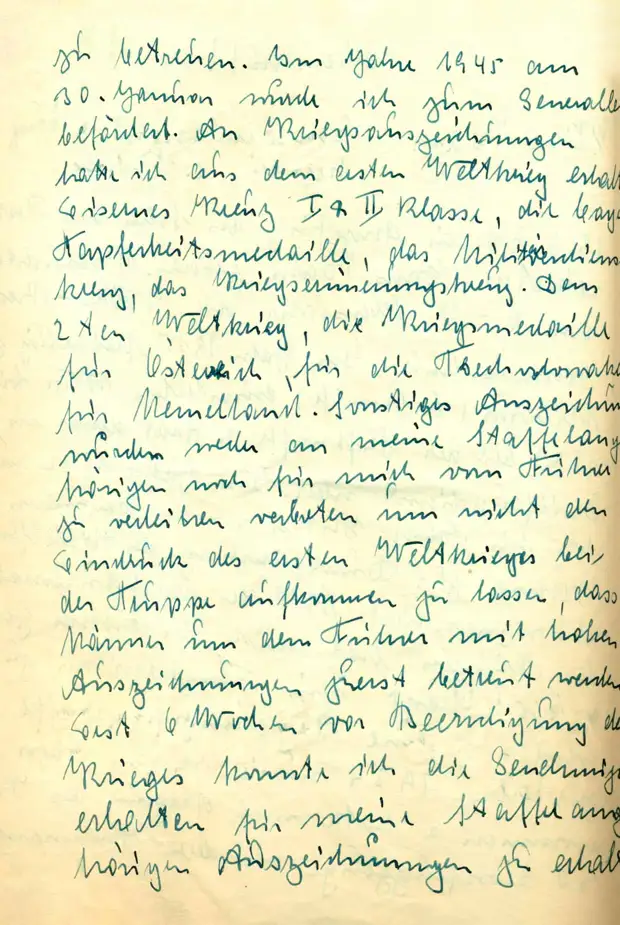 zu betreuen. Im Jahre 1945 am
30. Januar wurde ich zum Generalle
befördert. An Kriegsauszeichnungen
hatte ich aus dem ersten Weltkrieg erhalt
Eisernes Kreuz I & II Klasse, die bay
Tapferheitsmedaille, das Militärdiens
kreuz, das Kriegserinnerungskreuz. Dem
2ten Weltkrieg, die Kriegsmedaille
für Östereich, für die Tschechoslowake
für Memelland. Sonstiges Auszeichnun
wurden weder an meine Staffelang
hörigen noch für mich vom Führer
zu verleihen verbeten um nicht den
Eindruck des ersten Weltkrieges bei
der Truppe aufkommen zu lassen, dass
Männer um dem Führer mit hohen
Auszeichnungen zuerst betreut werden
Erst 6 Wochen vor Beendigung de
Krieges konnte ich die Genehmig
erhalten für meine Staffelang
hörigen Auszeichnungen zu erhal